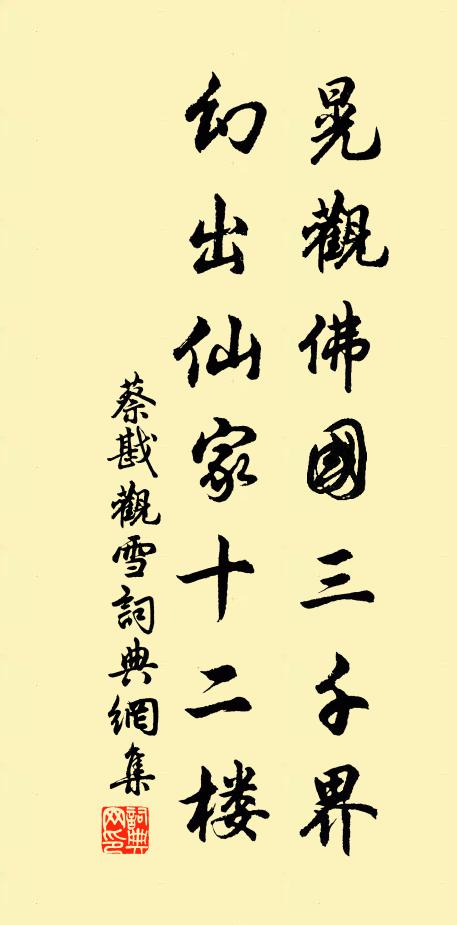 晃觀佛國三千界
幻出仙家十二楼
蔡戡觀雪詞典網集
詞典网印